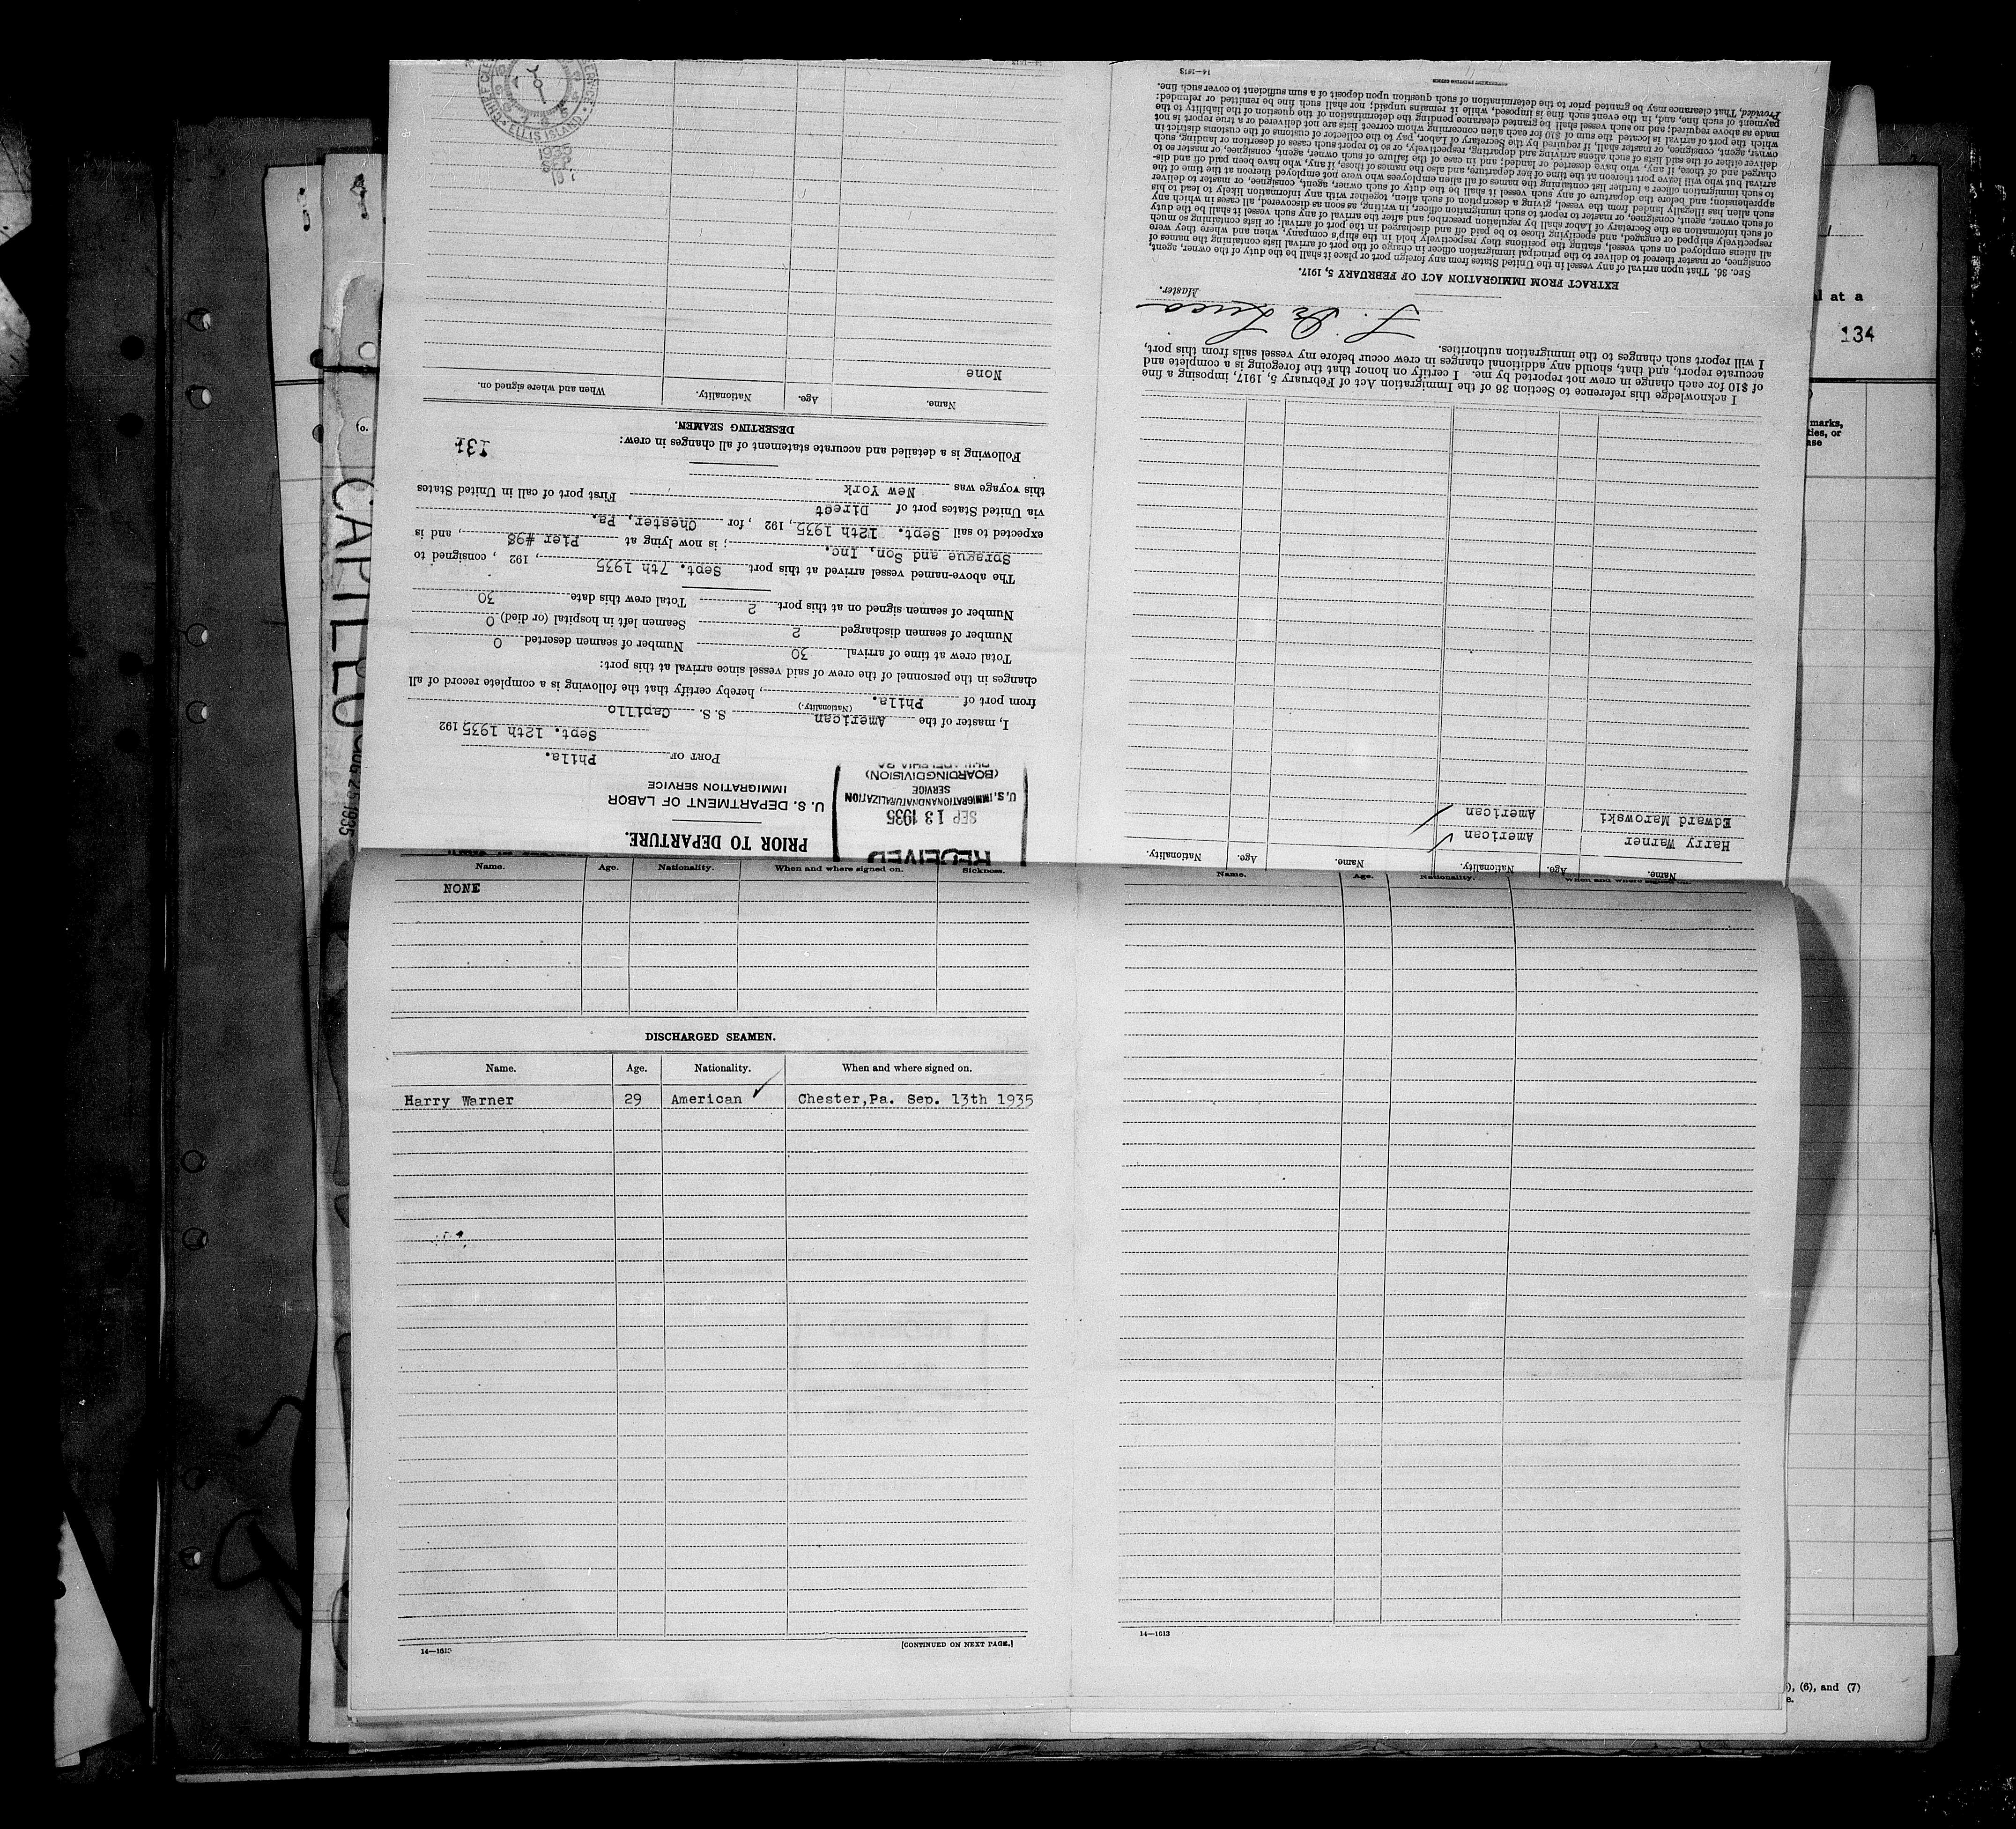 PRIOR TO DEPARTURE.
U. S. DEPARTMENT OF LABOR
IMMIGRATION SERVICE
RECEIVED
SEP 13 1935
U.S. IMMIGRATION AND NATURALIZATION
SERVICE
(BOARDING DIVISION)
PHILADELPHIA PA
PORT OF Phila.
Sept. 12th 1935 192
I, master of the American S. S. Capillo
(Nationality.)
from port of Phila., hereby certify that the following is a complete record of all
changes in the personnel of the crew of said vessel since arrival at this port:
Total crew at time of arrival 30 Number of seamen deserted 0
Number of seamen discharged 2 Seamen left in hospital (or died) 0
Number of seamen signed on at this port 2 Total crew this date 30
The above-named vessel arrived at this port Sept. 7th 1935, 192 , consigned to
Sprague and Son, Inc.; is now lying at Pier #98, and is
expected to sail Sept. 12th 1935, 192 , for Chester, Pa.
via United States port of Direct
this voyage was New York First port of call in United States
Following is a detailed and accurate statement of all changes in crew:
DESERTING SEAMEN.
Name. Age. Nationality. When and where signed on.
None
14—1613
CHIEF CLE SERVICE
ELLIS ISLAND
1935
SEP
Name. Age. Nationality. Name. Age. Nationality.
Harry Warner American
Edward Marowski American
I acknowledge this reference to Section 36 of the Immigration Act of February 5, 1917, imposing a fine
of $10 for each change in crew not reported by me. I certify on honor that the foregoing is a complete and
accurate report, and that, should any additional changes in crew occur before my vessel sails from this port,
I will report such changes to the immigration authorities.
Master.
EXTRACT FROM IMMIGRATION ACT OF FEBRUARY 5, 1917.
SEC. 36. That upon arrival of any vessel in the United States from any foreign port or place it shall be the duty of the owner, agent,
consignee, or master thereof to deliver to the principal immigration officer in charge of the port of arrival lists containing the names of
all aliens employed on such vessel, stating the positions they respectively hold in the ship's company, when and where they were
respectively shipped or engaged, and specifying those to be paid off and discharged in the port of arrival; or lists containing so much
of such information as the Secretary of Labor shall by regulation prescribe; and after the arrival of any such vessel it shall be the duty
of such owner, agent, consignee, or master to report to such immigration officer, in writing, as soon as discovered, all cases in which any
such alien has illegally landed from the vessel, giving a description of such alien, together with any information likely to lead to his
apprehension; and before the departure of any such vessel it shall be the duty of such owner, agent, consignee, or master to deliver
to such immigration officer a further list containing the names of all alien employees who were not employed thereon at the time of the
arrival but who will leave port thereon at the time of her departure, and also the names of those, if any, who have been paid off and dis-
charged and of those, if any, who have deserted or landed; and in case of the failure of such owner, agent, consignee, or master so to
deliver either of the said lists of such aliens arriving and departing, respectively, or so to report such cases of desertion or landing, such
owner, agent, consignee, or master shall, if required by the Secretary of Labor, pay to the collector of customs of the customs district in
which the port of arrival is located the sum of $10 for each alien concerning whom correct lists are not delivered or a true report is not
made as above required; and no such vessel shall be granted clearance pending the determination of the question of the liability to the
payment of such fine, and, in the event such fine is imposed, while it remains unpaid; nor shall such fine be remitted or refunded:
Provided, That clearance may be granted prior to the determination of such question upon deposit of a sum sufficient to cover such fine.
14—1613
GOVERNMENT PRINTING OFFICE
Name. Age. Nationality. When and where signed on. Sickness.
NONE
DISCHARGED SEAMEN.
Name. Age. Nationality. When and where signed on.
Harry Warner 29 American Chester,Pa. Sep. 13th 1935
14—1613
[CONTINUED ON NEXT PAGE.]
Name. Age. Nationality. When and where signed on.
14—1613
CAPILLO
AUG 25 1935
al at a
134
marks,
ties, or
ase
), (6), and (7)
e.